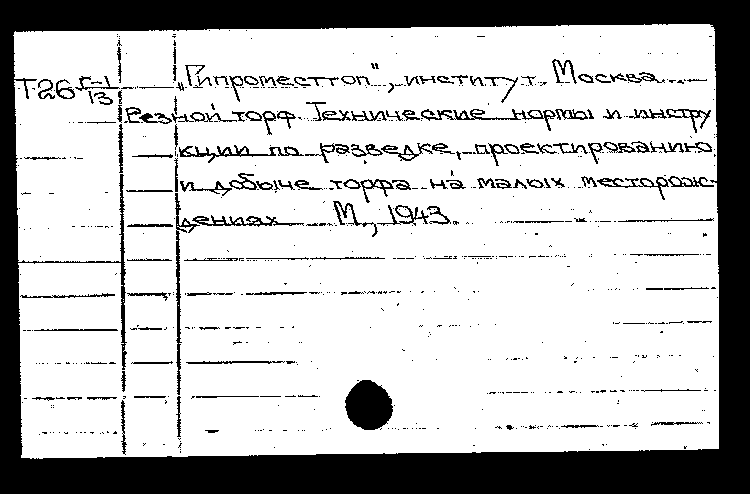 Т26 Г-1/13 „Гипроместтоп", институт. Москва.
Резной торф. Технические нормы и инстру
кции по разведке, проектированию
и добыче торфа на малых месторож-
дениях М., 1943